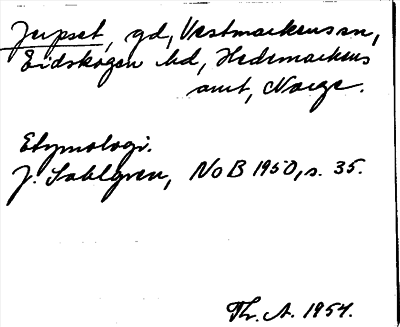 Jerpset, gd, Vestmarkens sn,
Eidskogen hd, Hedemarkens
amt, Norge.
Etymologi.
J. Sahlgren, NoB 1950, s. 35.
Th. A. 1954.